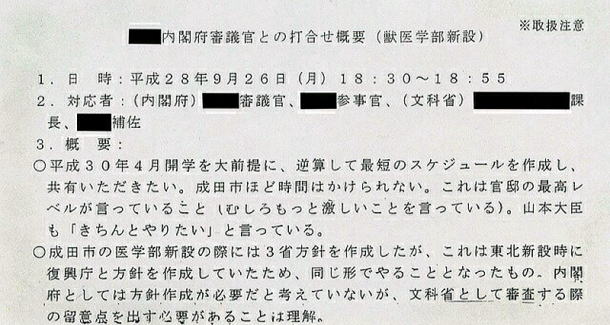 ※取扱注意
内閣府審議官との打合せ概要（獣医学部新設）
１．日　時：平成２８年９月２６日（月）１８：３０～１８：５５
２．対応者：（内閣府）審議官、参事官、（文科省）課
長、補佐
３．概　要：
○平成３０年４月開学を大前提に、逆算して最短のスケジュールを作成し、
共有いただきたい。成田市ほど時間はかけられない。これは官邸の最高レ
ベルが言っていること（むしろもっと激しいことを言っている）。山本大臣
も「きちんとやりたい」と言っている。
○成田市の医学部新設の際には３省方針を作成したが、これは東北新設時に
復興庁と方針を作成していたため、同じ形でやることとなったもの。内閣
府としては方針作成が必要だと考えていないが、文科省として審査する際
の留意点を出す必要があることは理解。